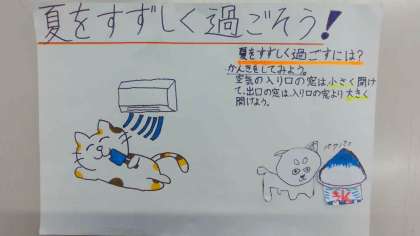 夏をすずしく過ごそう!
夏をすずしく過ごすには?
かんきをしてみよう。
空気の入り口の窓は小さく開け
て、出口の窓は、入り口の窓より大きく
開けよう。
氷